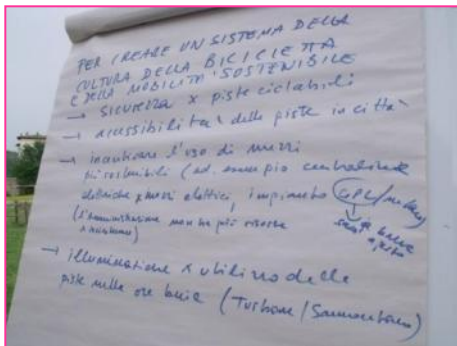 PER CREARE UN SISTEMA DELLA
CULTURA DELLA BICICLETTA
E DELLA MOBILITÀ SOSTENIBILE
→ SICUREZZA x piste ciclabili
→ accessibilità delle piste in città
→ incentivare l'uso di mezzi
più sostenibili (ad. esempio centraline
elettriche x mezzi elettrici, impianto GPL/metano)
(l'amministrazione non ha più risorse
→ illuminazione x utilizzo delle
piste nelle ore buie (Turbone/Sammontana)